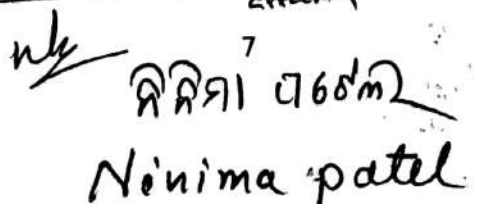 7
ନିନିମା ପଟେଲ
Ninima patel